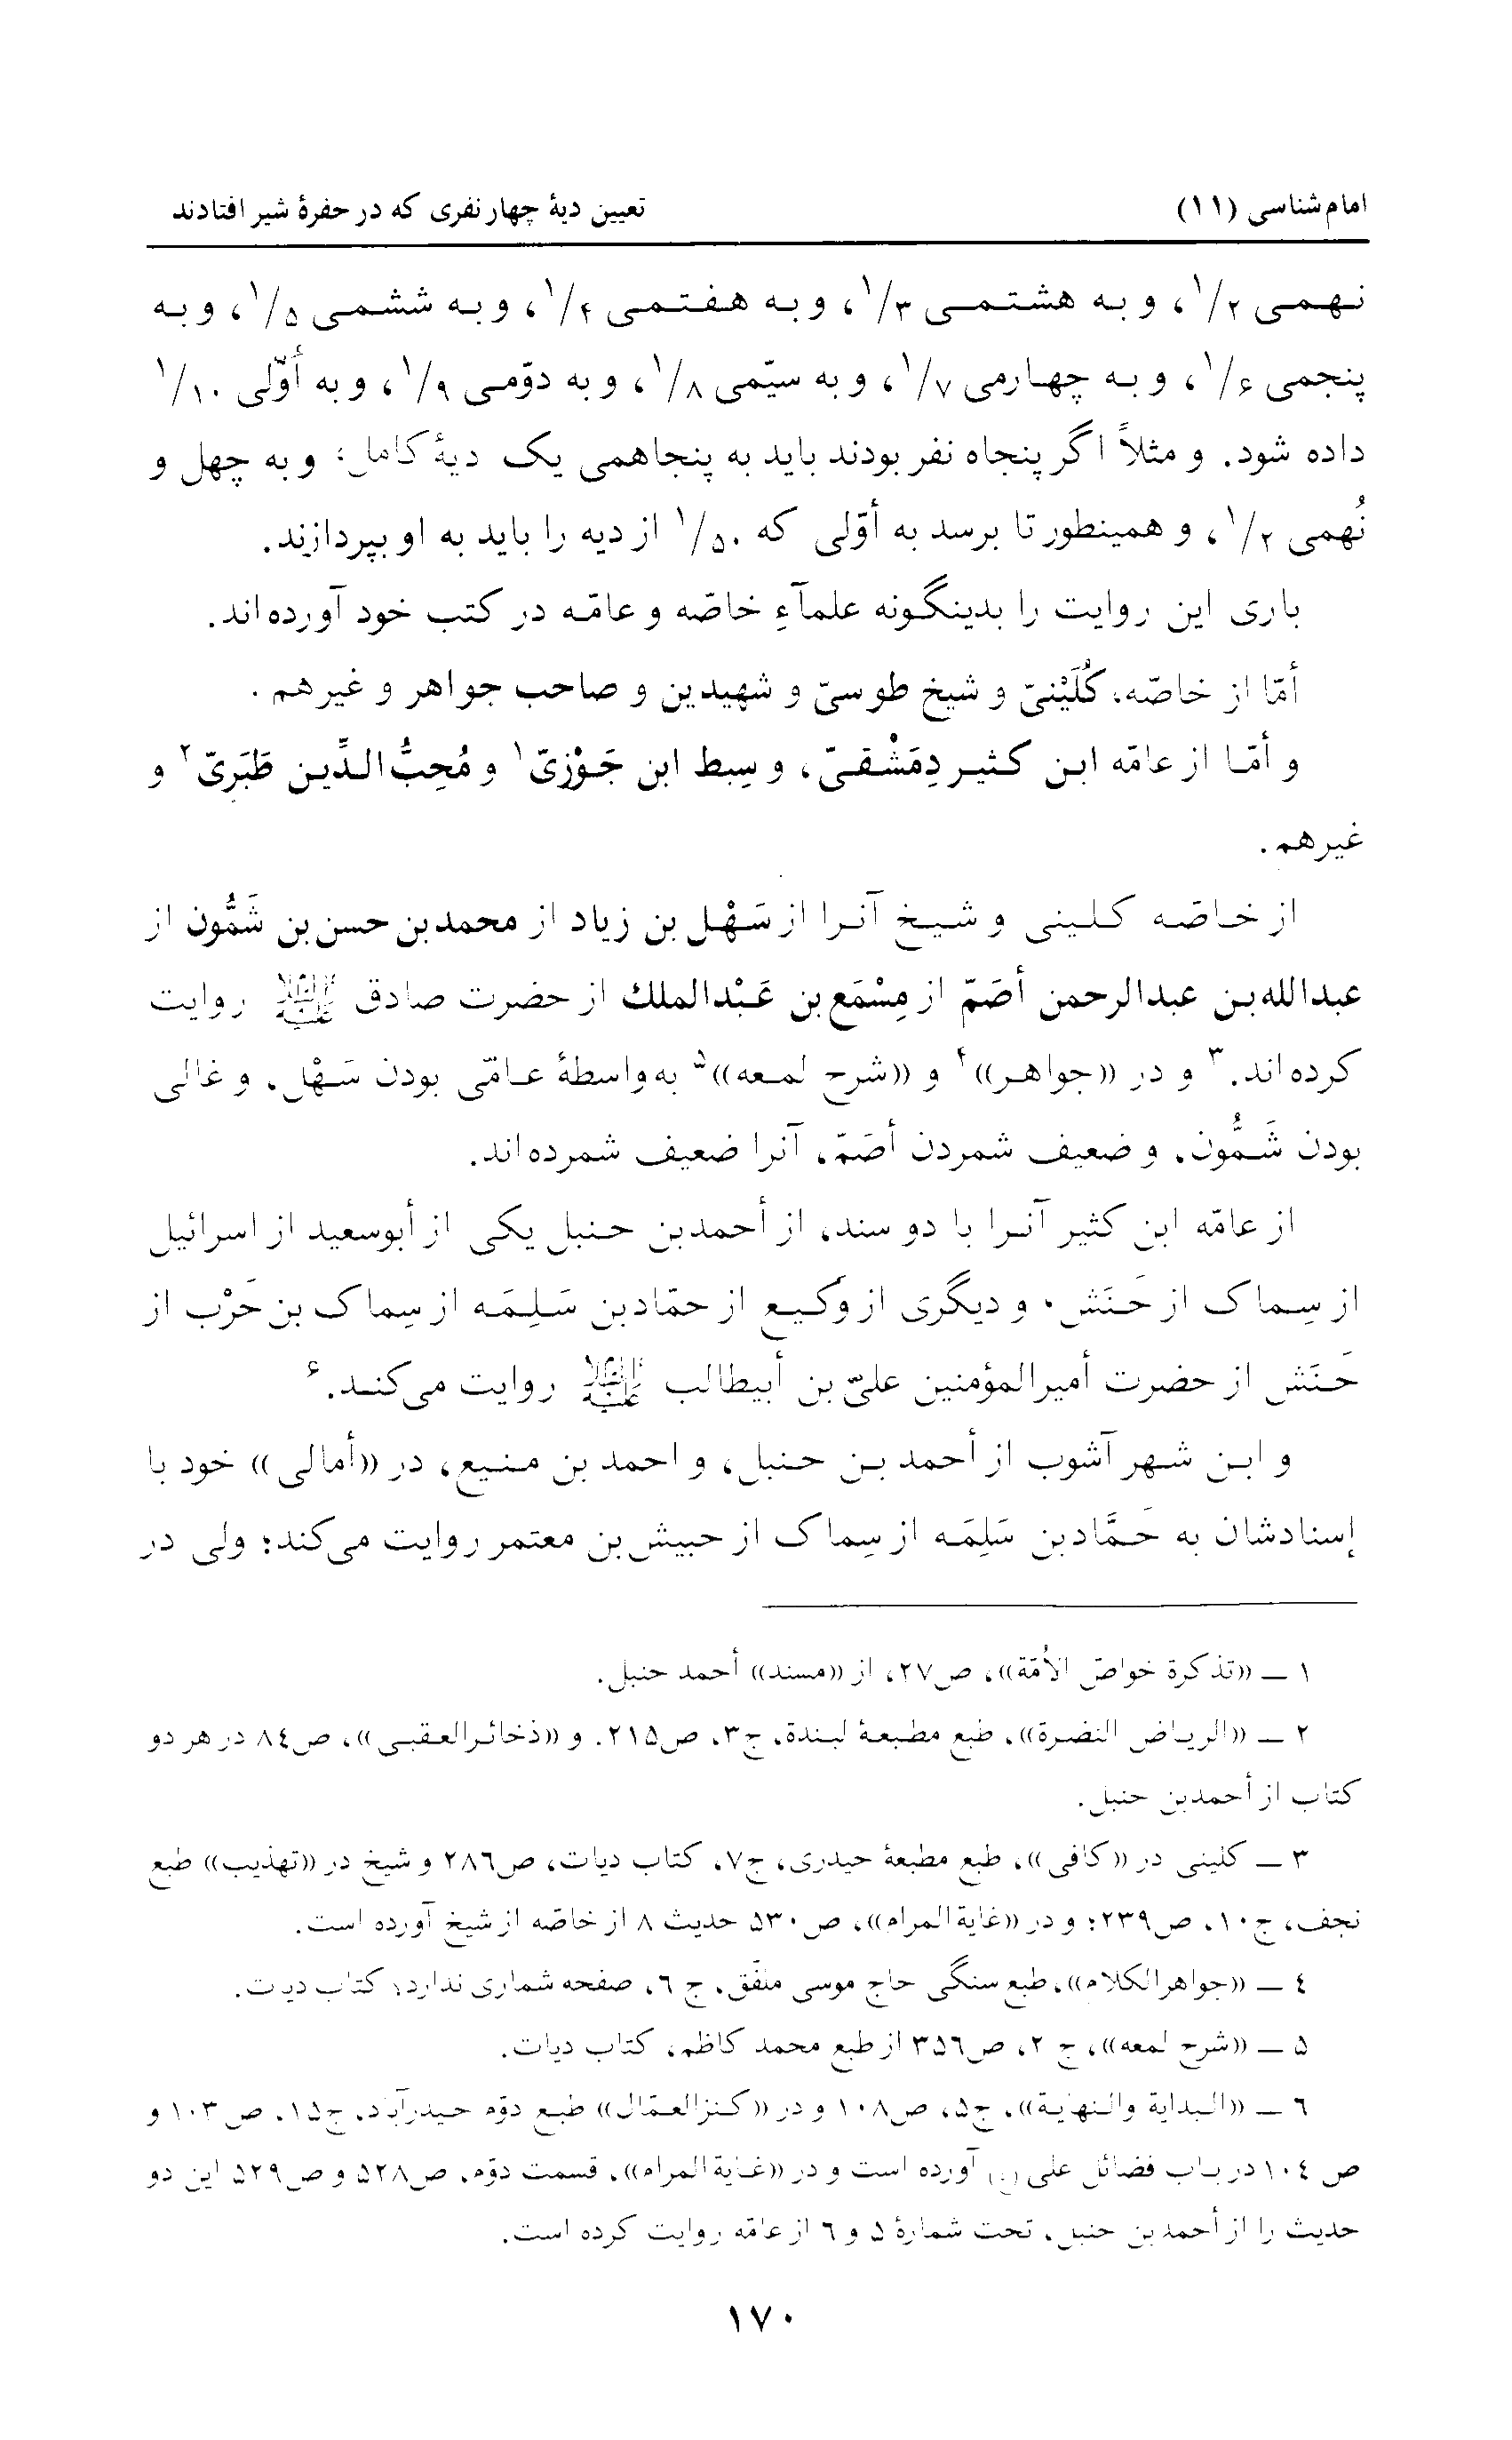 امام‌شناسی (۱۱)
تعیین دیهٔ چهار نفری که در حفرهٔ شیر افتادند
نهمی ۱/۲، و به هشتمی ۱/۳، و به هفتمی ۱/۴، و به ششمی ۱/۵، و به
پنجمی ۱/۶، و به چهارمی ۱/۷، و به سیّمی ۱/۸، و به دوّمی ۱/۹، و به أوّلی ۱/۱۰
داده شود. و مثلاً اگر پنجاه نفر بودند باید به پنجاهمی یک دیهٔ کامل؛ و به چهل و
نُهمی ۱/۲، و همینطور تا برسد به أوّلی که ۱/۵۰ از دیه را باید به او بپردازند.
باری این روایت را بدینگونه علمآءِ خاصّه و عامّه در کتب خود آورده‌اند.
أمّا از خاصّه، کُلَیْنیّ و شیخ طوسیّ و شهیدین و صاحب جواهر و غیرهم.
و أمّا از عامّه ابن کثیر دِمَشْقیّ، و سِبط ابن جَوْزیّ۱ و مُحِبُّ الدِّین طَبَریّ۲ و
غیرهم.
از خاصّه کلینی و شیخ آنرا از سَهْل بن زیاد از محمد بن حسن بن شَمُّون از
عبدالله بن عبدالرحمن أصَمّ از مِسْمَع بن عَبْدالملك از حضرت صادق علیه‌السّلام روایت
کرده‌اند.۳ و در ((جواهر))۴ و ((شرح لمعه))۵ به‌واسطهٔ عامّی بودن سَهْل، و غالی
بودن شَمُّون، و ضعیف شمردن أصَمّ، آنرا ضعیف شمرده‌اند.
از عامّه ابن کثیر آنرا با دو سند، از أحمد بن حنبل یکی از أبوسعید از اسرائیل
از سِماک از حَنَش، و دیگری از وکیع از حمّاد بن سَلِمَه از سِماک بن حَرْب از
حَنَش از حضرت أمیرالمؤمنین علیّ بن أبیطالب علیه‌السّلام روایت می‌کند.۶
و ابن شهر آشوب از أحمد بن حنبل، و احمد بن منیع، در ((أمالی)) خود با
إسنادشان به حَمَّاد بن سَلِمَه از سِماک از حبیش بن معتمر روایت می‌کند؛ ولی در
۱ — ((تذکرة خواصّ الأمّة))، ص۲۷، از ((مسند)) أحمد حنبل.
۲ — ((الریاض النضرة))، طبع مطبعهٔ لبندة، ج۳، ص۲۱۵. و ((ذخائر العقبی))، ص۸٤ در هر دو
کتاب از أحمد بن حنبل.
۳ — کلینی در ((کافی))، طبع مطبعهٔ حیدری، ج۷، کتاب دیات، ص۲۸٦ و شیخ در ((تهذیب)) طبع
نجف، ج۱۰، ص۲۳۹؛ و در ((غایة المرام))، ص۵۳۰ حدیث ۸ از خاصّه از شیخ آورده است.
٤ — ((جواهر الکلام))، طبع سنگی حاج موسی ملفّق، ج ٦، صفحه شماری ندارد؛ کتاب دیات.
۵ — ((شرح لمعه))، ج ۲، ص۳۵٦ از طبع محمد کاظم، کتاب دیات.
٦ — ((البدایة والنهایة))، ج۵، ص۱۰۸ و در ((کنز العمّال)) طبع دوّم حیدرآباد، ج۱۵، ص۱۰۳ و
ص ۱۰٤ در باب فضائل علی (ع) آورده است و در ((غایة المرام))، قسمت دوّم، ص۵۲۸ و ص۵۲۹ این دو
حدیث را از أحمد بن حنبل، تحت شمارهٔ ۵ و ٦ از عامّه روایت کرده است.
۱۷۰